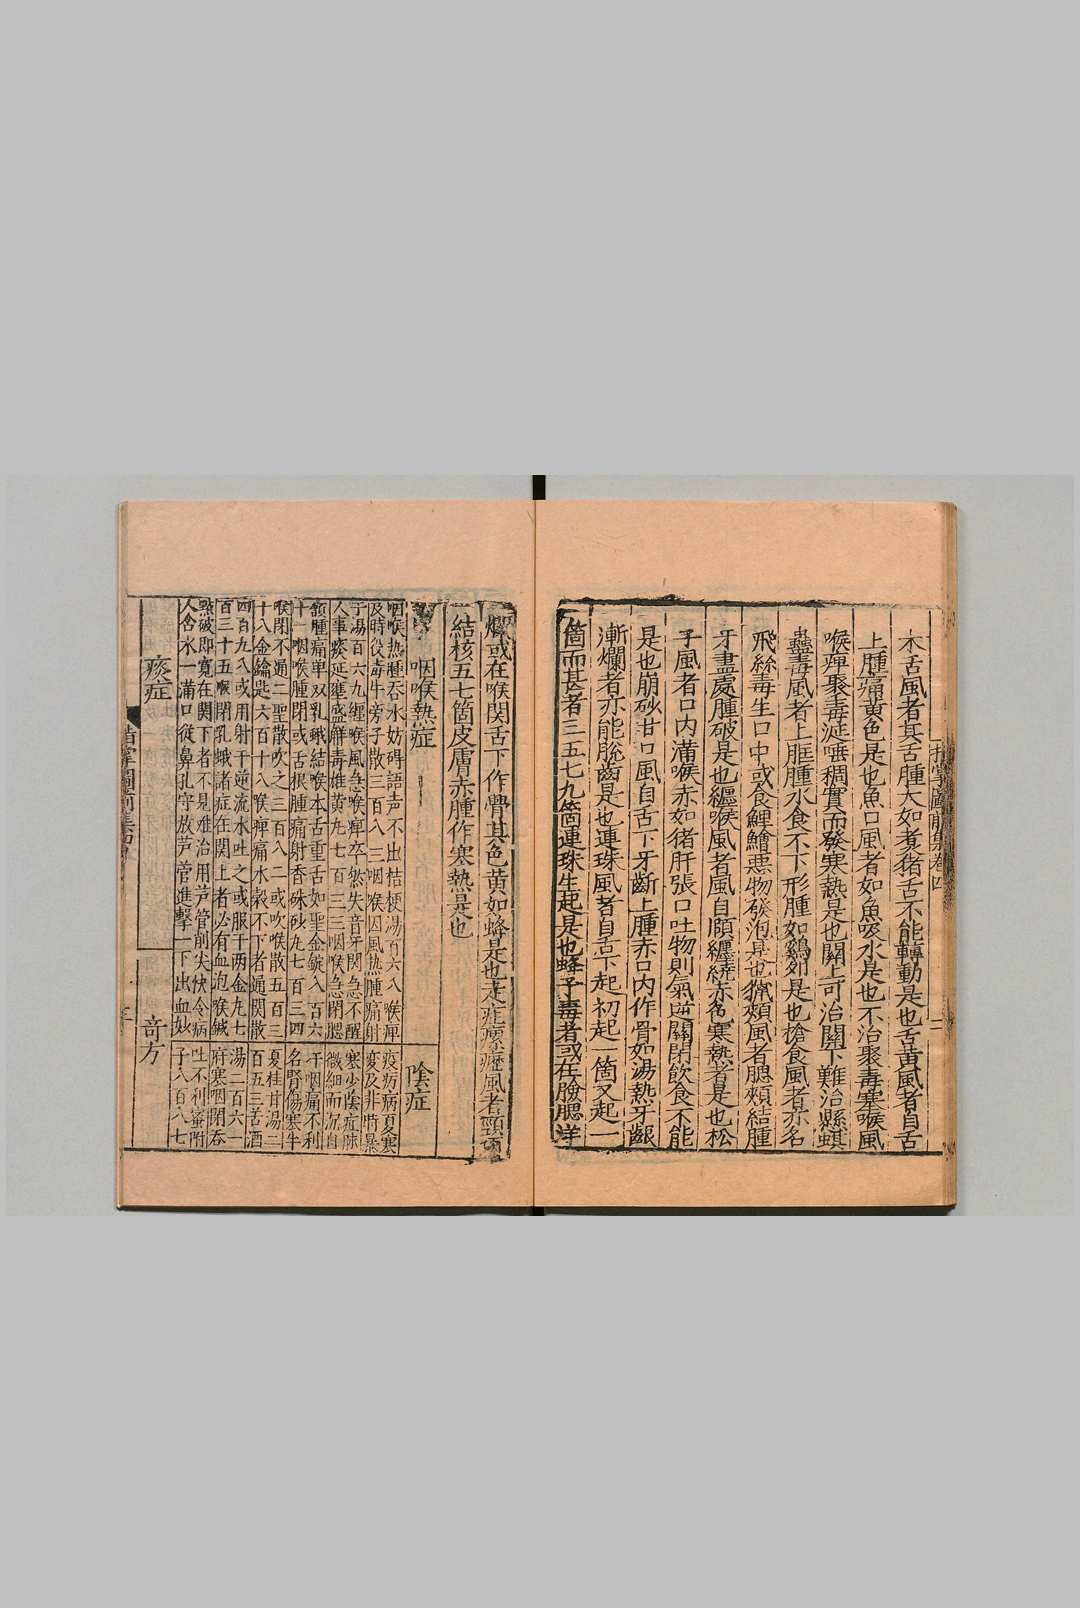 木舌風者其舌腫大如煮猪舌不能轉動是也舌黃風者自舌
上腫痛黃色是也魚口風者如魚吸水是也不治聚毒塞喉風
喉痺聚毒涎唾稠實而發寒熱是也關上可治關下難治懸蜞
蠱毒風者上腭腫水食不下形腫如鷄卵是也搶食風者亦名
飛絲毒生口中或食鯉鱠惡物發泡是也獵頰風者腮頰結腫
牙盡處腫破是也纏喉風者風自頤纏繞赤色寒熱者是也松
子風者口内滿喉赤如猪肝張口吐物則氣逆關閉飲食不能
是也崩砂甘口風自舌下牙齗上腫赤口内作骨如湯熱牙齦
漸爛者亦能脫齒是也連珠風者自舌下起初起一箇又起一
箇而甚者三五七九箇連珠生起是也蜂子毒者或在臉腮洋
爛或在喉関舌下作骨其色黃如蜂是也走疰瘰癧風者頸
結核五七箇皮膚赤腫作寒熱是也
咽喉熱症
咽喉热腫吞水妨碍語声不出桔梗湯百六八喉痺
及時役毒牛旁子散三百八三咽喉囚風热腫痛射
子湯百六九纏喉風急喉痺卒然失音牙関急不醒
人事痰延壅盛觧毒雄黄九七百三三咽喉急閉腮
頷腫痛单双乳蛾結喉本舌重舌如聖金錠八百六
十一咽喉腫閉或舌根腫痛射香硃砂九七百三四
喉閉不通二聖散吹之三百八二或吹喉散五百三
十八金鑰匙六百十八喉痺痛水穀不下者通関散
四百九八或用射干逆流水吐之或服于两金九七
百三十五喉閉乳蛾諸症在関上者必有血泡喉鍼
㸃破即寛在関下者不見难治用芦管削尖伏令病
人含水一滿口從鼻孔守放芦管進擊一下出血妙
陰症
疫疠病夏寒
変及非時暴
寒少陰症脉
微細而沉自
汗咽痛不利
名腎傷寒半
夏桂甘湯二
百五三苦酒
湯二百六一
府寒咽閉吞
吐不利蜜附
子八百八七
痰症
奇方
三